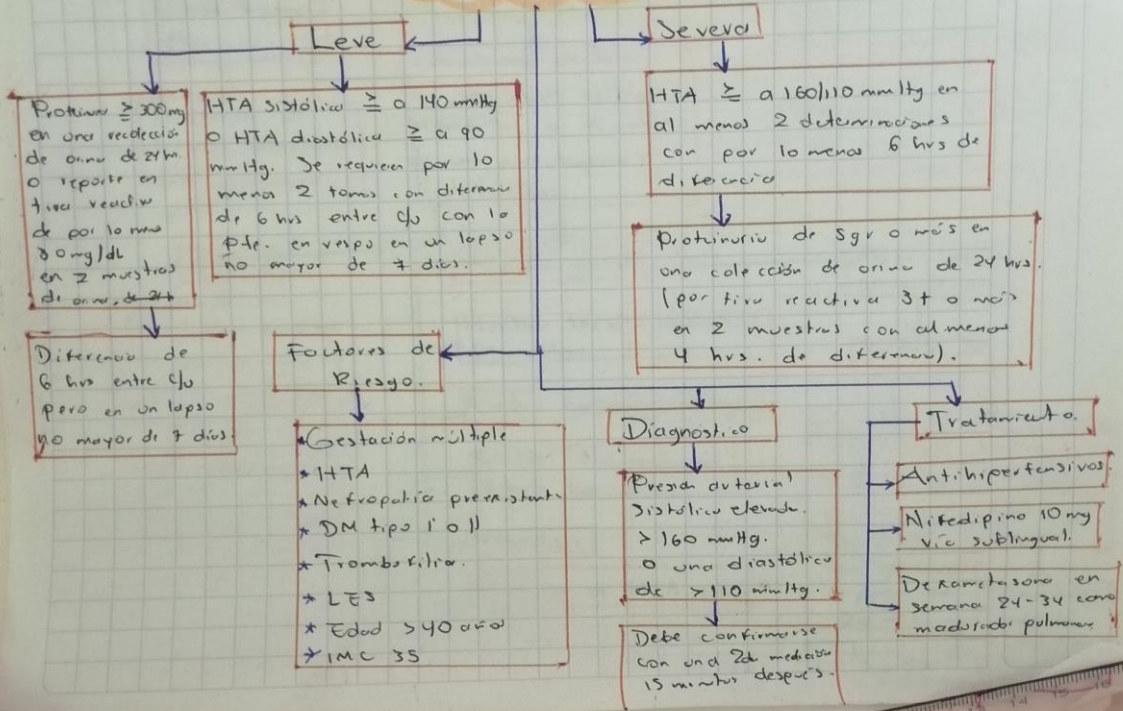 Leve
Severa
Proteinur ≥ 300mg
en una recolección
de orina de 24h.
o reporte en
tira reactiv
de por lo men
30mg/dL
en 2 muestras
de orina, de 24h
HTA sistólica ≥ a 140 mmHg
o HTA diastólica ≥ a 90
mmHg. Se requieren por lo
menos 2 tomas con diferencia
de 6 hrs entre c/u con la
pte. en reposo en un lapso
no mayor de 7 días.
HTA ≥ a 160/110 mmHg en
al menos 2 determinaciones
con por lo menos 6 hrs de
diferencia
Proteinuria de 5gr o más en
una colección de orina de 24 hrs.
(por tira reactiva 3+ o más
en 2 muestras con al menos
4 hrs. de diferencia).
Diferencia de
6 hrs entre c/u
pero en un lapso
no mayor de 7 días
Factores de
Riesgo.
* Gestación múltiple
* HTA
* Nefropatía preexistente
* DM tipo I o II
* Trombofilia.
* LES
* Edad >40 años
* IMC 35
Diagnostico
Presión arterial
sistólica elevada.
> 160 mmHg.
o una diastólica
de >110 mmHg.
Debe confirmarse
con una 2da medición
15 minutos después.
Tratamiento.
Antihipertensivos.
Nifedipino 10 mg
vía sublingual.
Dexametasona en
semana 24-34 como
madurador pulmonar
13 14 15 16